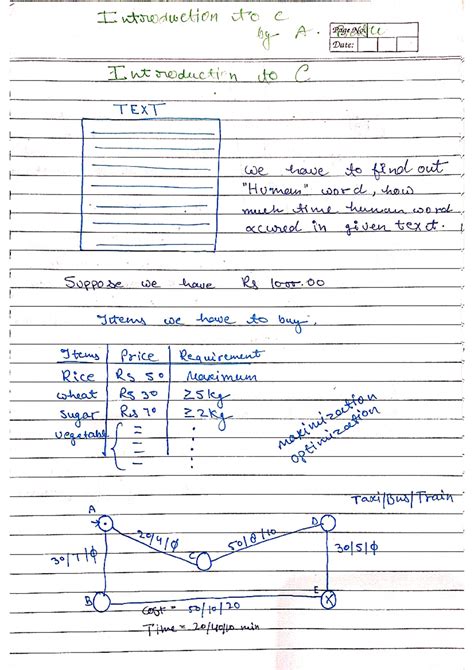 Introduction to C
by A.
Page No.
Date:
Introduction to C
TEXT
we have to find out
"Human" word, how
much time human word
accured in given text.
Suppose we have Rs 1000.00
Items we have to buy.
Items Price Requirement
Rice Rs 50 Maximum
wheat Rs 30 ≥5kg
Sugar Rs 70 ≥2kg
vegetable
maximization
optimization
Taxi/Bus/Train
A
D
20/4/ϕ
50/8/10
C
30/7/ϕ
30/5/ϕ
B
E
X
Cost = 50/10/20
Time = 20/40/10 min